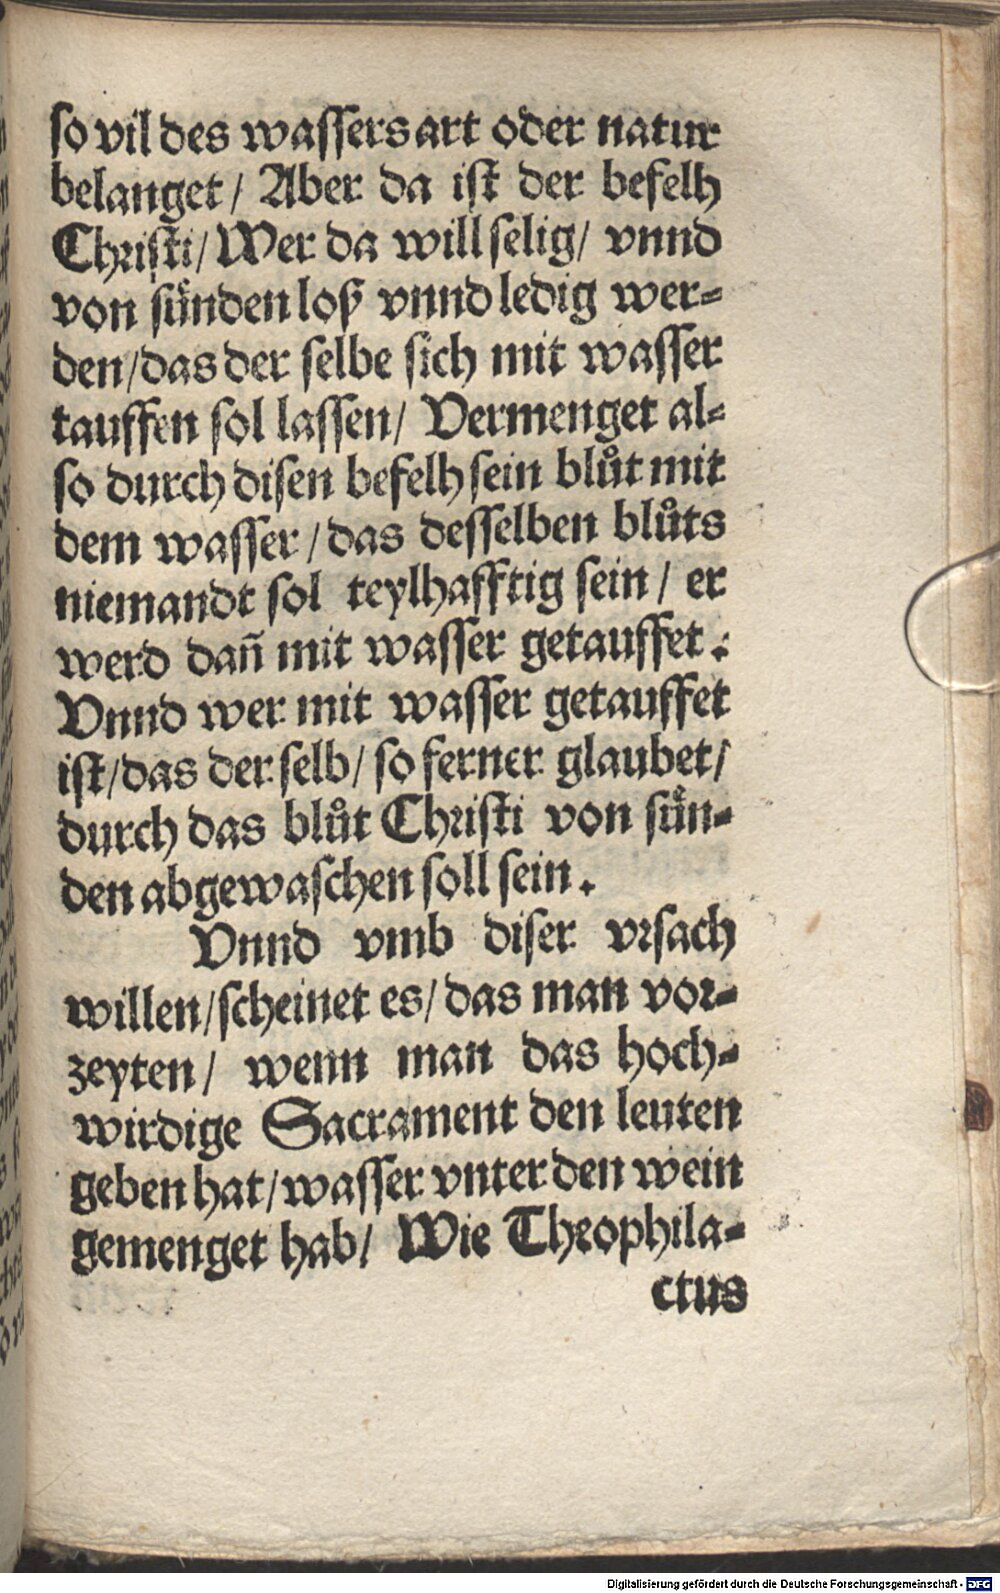 so vil des wassers art oder natur
belanget / Aber da ist der befelh
Christi / Wer da will selig / vnnd
von sünden loß vnnd ledig wer⸗
den / das der selbe sich mit wasser
tauffen sol lassen / Vermenget al⸗
so durch disen befelh sein blůt mit
dem wasser / das desselben blůts
niemandt sol teylhafftig sein / er
werd dañ mit wasser getauffet.
Vnnd wer mit wasser getauffet
ist / das der selb / so ferner glaubet /
durch das blůt Christi von sün⸗
den abgewaschen soll sein.
Vnnd vmb diser vrsach
willen / scheinet es / das man vor⸗
zeyten / wenn man das hoch⸗
wirdige Sacrament den leuten
geben hat / wasser vnter den wein
gemenget hab / Wie Theophila⸗
ctus
Digitalisierung gefördert durch die Deutsche Forschungsgemeinschaft - DFG